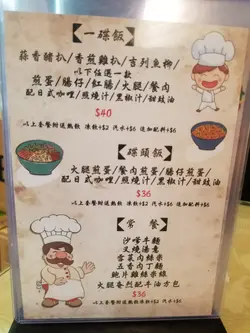 【一碟飯】
蒜香豬扒/香煎雞扒/吉列魚柳/
以下任選一款
煎蛋/腸仔/紅腸/火腿/餐肉
配日式咖哩/照燒汁/黑椒汁/甜豉油
$40
以上套餐附送熱飲 凍飲+$2 汽水+$6 追加配料+$6
【碟頭飯】
火腿煎蛋/餐肉煎蛋/腸仔煎蛋/
配日式咖哩/照燒汁/黑椒汁/甜豉油
$36
以上套餐附送熱飲 凍飲+$2 汽水+$6 追加配料+$6
【常餐】
沙嗲牛麵
叉燒湯意
雪菜肉絲米
五香肉丁麵
鮑片雞絲米線
火腿奄烈配牛油方包
$36
以上套餐附送熱飲 凍飲+$2 汽水+$6 追加配料+$6